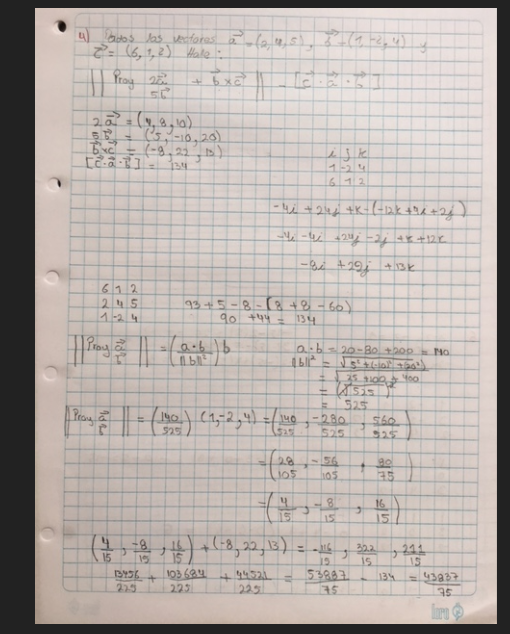 4) Dados los vectores a = (2,4,5), b = (1,-2,4) y
c = (6,1,2) Hale:
|| Proy 2a 5b + b×c || - [c·a·b]
2a = (4,8,10)
5b = (5,-10,20)
b×c = (-8,22,13)
[c·a·b] = 134
i j k
1 -2 4
6 1 2
-4i + 24j + k - (-12k + 4i + 2j)
-4i - 4i + 24j - 2j + k + 12k
-8i + 22j + 13k
6 1 2
2 4 5
1 -2 4
93 + 5 - 8 - (8 + 8 - 60)
90 + 44 = 134
|| Proy a b || = (a·b / ||b||²) b
a·b = 20 - 80 + 200 = 140
||b||² = √5²+(-10)²+20²
= √25 + 100 + 400
= (√525)²
= 525
|| Proy a b || = (140/525) (1,-2,4) = (140/525, -280/525, 560/525)
= (28/105, -56/105, 80/75)
= (4/15, -8/15, 16/15)
(4/15, -8/15, 16/15) + (-8,22,13) = -116/15, 322/15, 211/15
13456/225 + 103684/225 + 44521/225 = 53887/75 - 134 = 43837/75